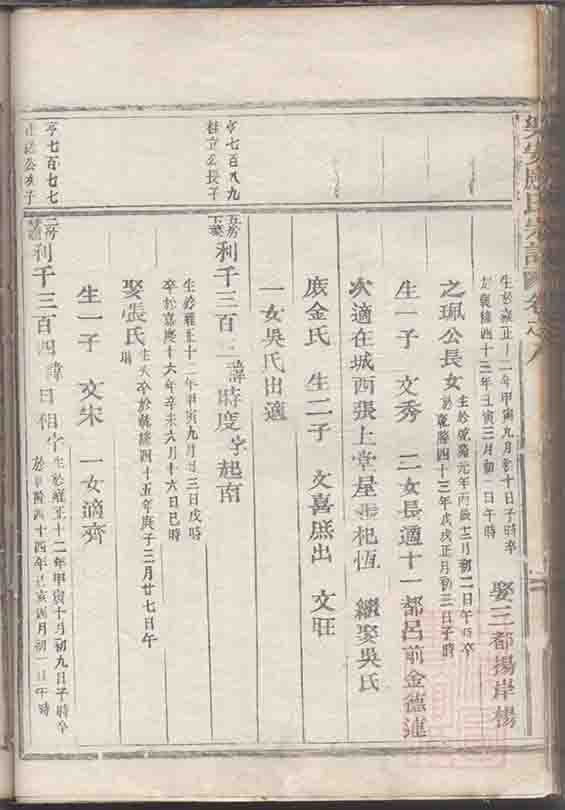 生於雍正十二年甲寅九月初十日子時卒
乾隆四十三年戊寅三月初二日午時
娶三都揚岸楊
之珮公長女
生於乾隆元年丙辰十二月初二日午時卒
於乾隆四十三年戊戌正月初三日子時
生一子 文秀 二女長適十一都呂前金德連
次適在城西張上堂屋 杞恆 繼娶吳氏
庶金氏 生二子 文喜庶出 文旺
一女吳氏出適
亨七百八九
桂立公長子
五房
利千三百三 諱時度字起南
生於雍正十二年甲寅九月 三日戌時
卒於嘉慶十六年辛未六月十六日巳時
娶張氏
生 卒於乾隆四十五年庚子三月廿七日午
時
生一子 文宋 一女適齊
亨七百七七
公 子
二房
利千三百四 諱日相字
生於雍正十二年甲寅十月初九日子時卒
於乾隆四十四年己亥四月初一日午時